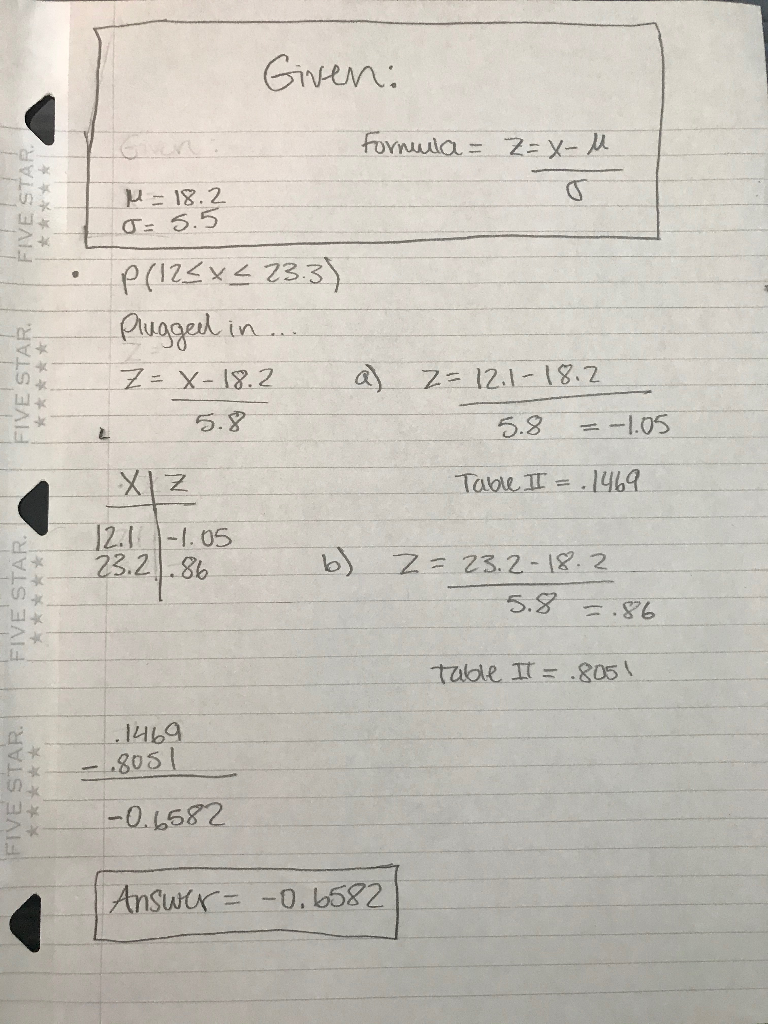 Given:
Given:
Formula = Z = X - μ
σ
μ = 18.2
σ = 5.5
• P(12 ≤ X ≤ 23.3)
Plugged in ...
Z = X - 18.2
5.8
a) Z = 12.1 - 18.2
5.8 = -1.05
Table II = .1469
X | Z
12.1 | -1.05
23.2 | .86
b) Z = 23.2 - 18.2
5.8 = .86
Table II = .8051
.1469
- .8051
-0.6582
Answer = -0.6582
FIVE STAR.
FIVE STAR.
FIVE STAR.
FIVE STAR.